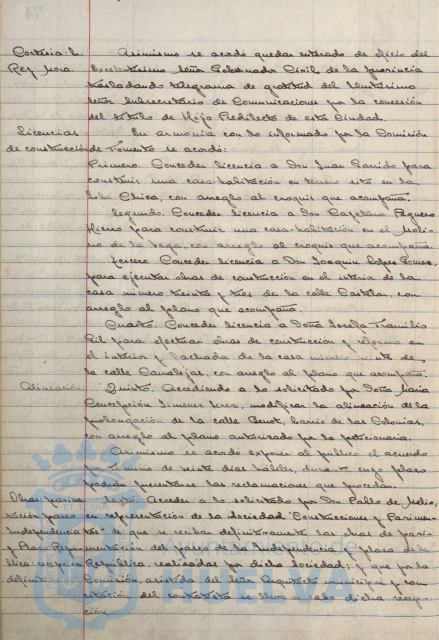 Cortesia: L. Asimismo se acordó quedar enterado de oficio del
Rey Mora Excelentisimo Señor Gobernador Civil de la provincia
trasladando telegrama de gratitud del Ilustrisimo
Señor Subsecretario de Comunicaciones por la concesión
del titulo de Hijo Predilecto de esta Ciudad.
Licencias En armonia con lo informado por la Comisión
de construcción de Fomento se acordó:
Primero. Conceder licencia a Don Juan Garrido para
construir una casa-habitación en terreno sito en la
Chica, con arreglo al croquis que acompaña.
Segundo. Conceder licencia a Don Cayetano
Hierro para construir una casa-habitación en el Moli-
no de la Vega, con arreglo al croquis que acompaña.
Tercero. Conceder licencia a Don Joaquin Lopez Gomez,
para ejecutar obras de construcción en el interior de la
casa número treinta y tres de la calle Castelar, con
arreglo al plano que acompaña.
Cuarto. Conceder licencia a Doña Josefa
Gil para efectuar obras de construcción y reforma en
el interior y fachada de la casa número siete de
la calle Canalejas, con arreglo al plano que acompaña.
Alineación Quinto. Accediendo a lo solicitado por Doña Maria
Concepción Jimenez modificar la alineación de la
prolongación de la calle Benot, barrio de las Colonias,
con arreglo al plano autorizado por la peticionaria.
Asimismo se acordó exponer al público el acuerdo
por término de veinte dias hábiles, durante cuyo plazo
podrán presentarse las reclamaciones que procedan.
Obras Sexto. Acceder a lo solicitado por Don Pablo de
en representación de la Sociedad "Construcciones y Pavimen-
Independencia tos" de que se reciban definitivamente las obras de pavi-
y Plaza Repu- mentación del paseo de la Independencia y plaza de la
blica: recepcion Republica realizadas por dicha Sociedad; y que por la
definitiva Comisión, asistida del Señor Arquitecto municipal y con
citación del contratista se lleve a cabo dicha recep-
ción
HUELVA